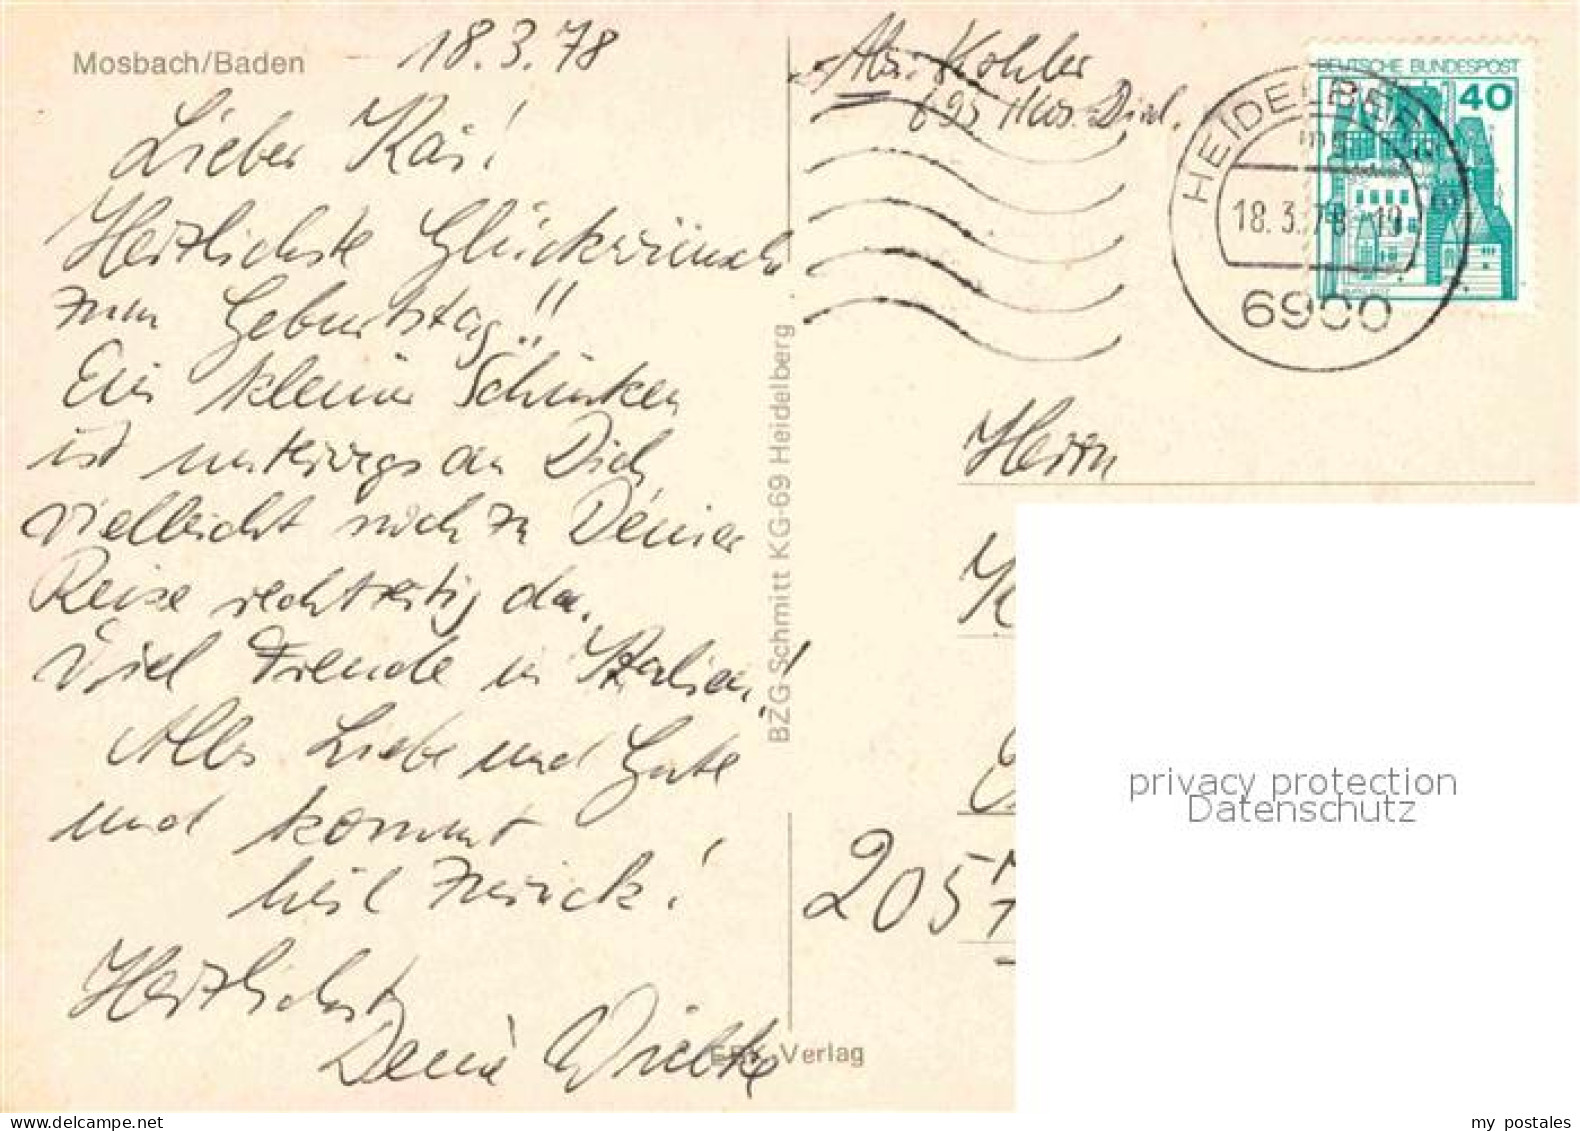 Mosbach/Baden
18.3.78
Lieber Kai!
Herzlichste Glückwünsche
zum Geburtstag!!
Ein kleiner Schinken
ist unterwegs an Dich,
vielleicht noch zu Deiner
Reise rechtzeitig da.
Viel Freude in Italien!
Alles Liebe und Gute
und kommt
heil zurück!
Herzlichst
Deine Wiebke
BZG-Schmitt KG-69 Heidelberg
EBK Verlag
Abs. Kohler
695 Mos. Died.
DEUTSCHE BUNDESPOST
40
HEIDELBERG
18.3.78-19
6900
Herrn
K
205
privacy protection
Datenschutz
my postales